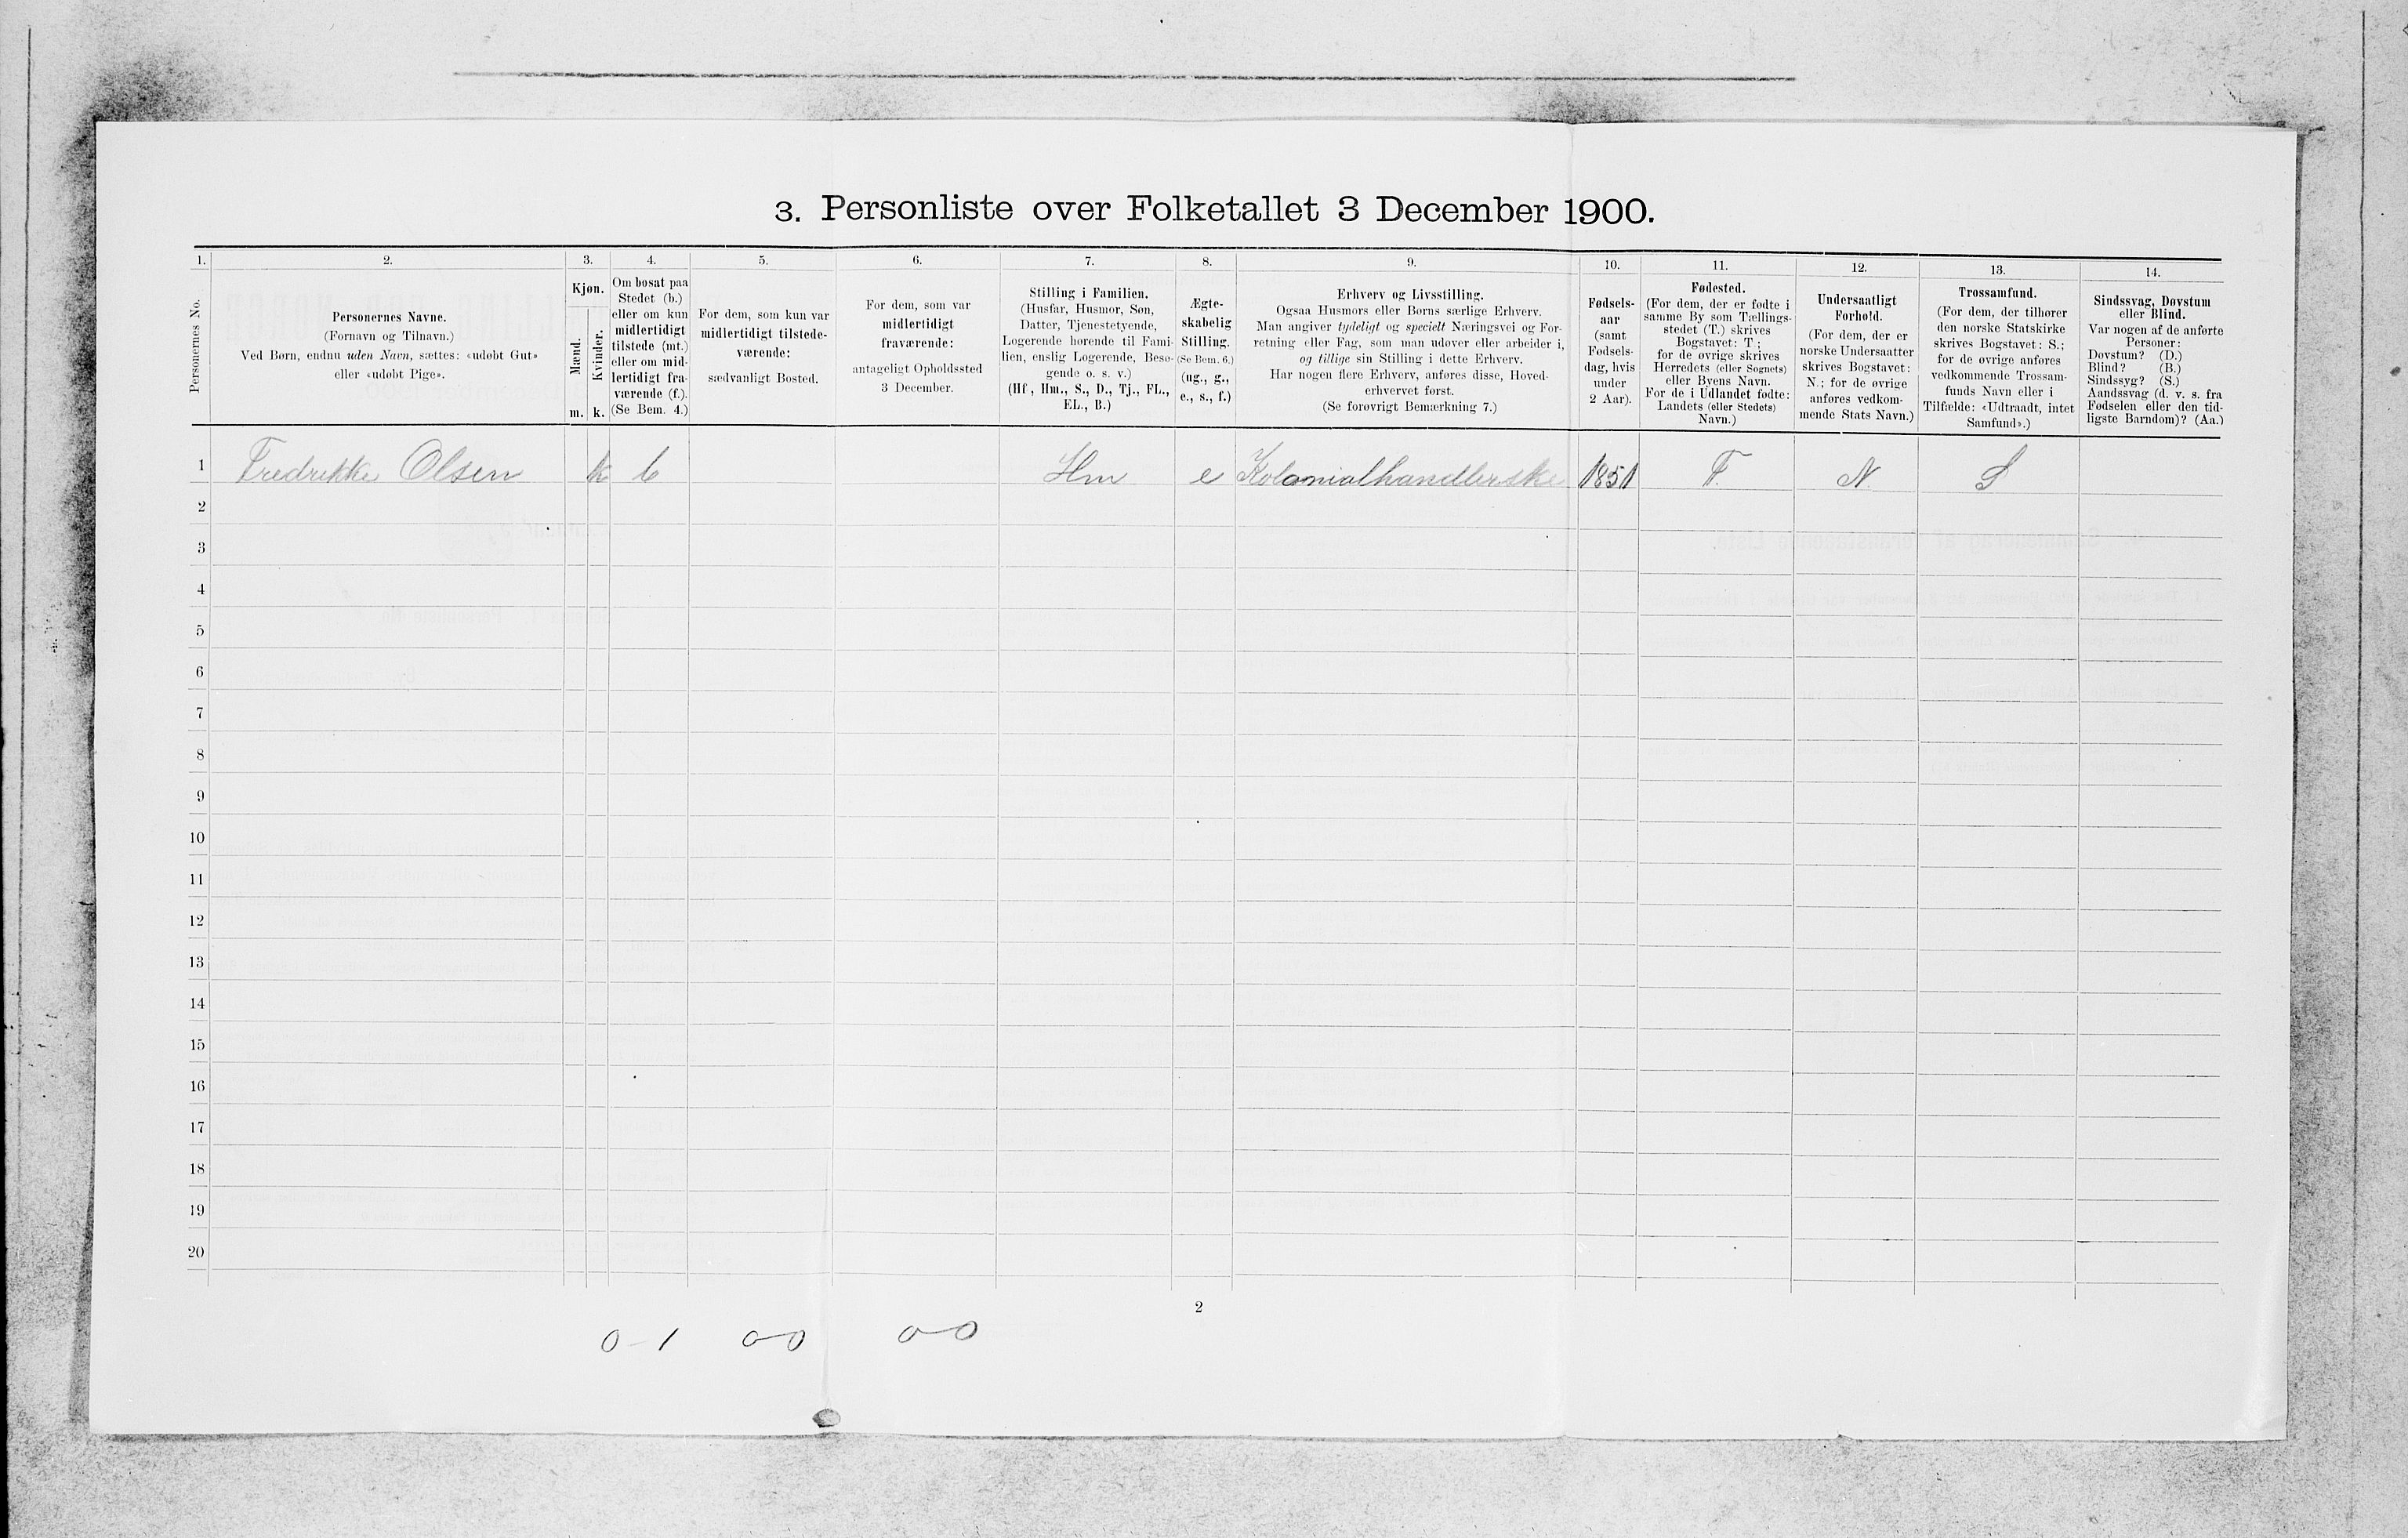 3. Personliste over Folketallet 3 December 1900.
1. 2. 3. 4. 5. 6. 7. 8. 9. 10. 11. 12. 13. 14.
Personernes No.
Personernes Navne.
(Fornavn og Tilnavn.)
Ved Børn, endnu uden Navn, sættes: «udøbt Gut»
eller «udøbt Pige».
Kjøn.
Mænd.
Kvinder.
m. k.
Om bosat paa
Stedet (b.)
eller om kun
midlertidigt
tilstede (mt.)
eller om mid-
lertidigt fra-
værende (f.).
(Se Bem. 4.)
For dem, som kun var
midlertidigt tilstede-
værende:
sædvanligt Bosted.
For dem, som var
midlertidigt
fraværende:
antageligt Opholdssted
3 December.
Stilling i Familien.
(Husfar, Husmor, Søn,
Datter, Tjenestetyende,
Logerende hørende til Fami-
lien, enslig Logerende, Besø-
gende o. s. v.)
(Hf, Hm., S., D., Tj., FL.,
EL., B.)
Ægte-
skabelig
Stilling.
(Se Bem. 6.)
(ug., g.,
e., s., f.)
Erhverv og Livsstilling.
Ogsaa Husmors eller Børns særlige Erhverv.
Man angiver tydeligt og specielt Næringsvei og For-
retning eller Fag, som man udøver eller arbeider i,
og tillige sin Stilling i dette Erhverv.
Har nogen flere Erhverv, anføres disse, Hoved-
erhvervet først.
(Se forøvrigt Bemærkning 7.)
Fødsels-
aar
(samt
Fødsels-
dag, hvis
under
2 Aar).
Fødested.
(For dem, der er fødte i
samme By som Tællings-
stedet (T.) skrives
Bogstavet: T;
for de øvrige skrives
Herredets (eller Sognets)
eller Byens Navn.
For de i Udlandet fødte:
Landets (eller Stedets)
Navn.)
Undersaatligt
Forhold.
(For dem, der er
norske Undersaatter
skrives Bogstavet:
N.; for de øvrige
anføres vedkom-
mende Stats Navn.)
Trossamfund.
(For dem, der tilhører
den norske Statskirke
skrives Bogstavet: S.;
for de øvrige anføres
vedkommende Trossam-
funds Navn eller i
Tilfælde: «Udtraadt, intet
Samfund».)
Sindssvag, Døvstum
eller Blind.
Var nogen af de anførte
Personer:
Døvstum? (D.)
Blind? (B.)
Sindssyg? (S.)
Aandssvag (d. v. s. fra
Fødselen eller den tid-
ligste Barndom)? (Aa.)
1 Fredrikke Olsen k b Hm e Kolonialhandlerske 1851 T. N. S
2
3
4
5
6
7
8
9
10
11
12
13
14
15
16
17
18
19
20
2
0-1 0-0 0-0